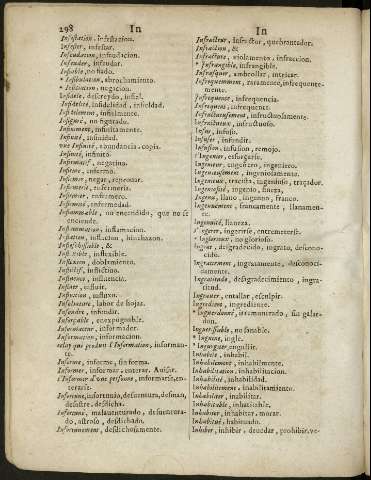 298 In
In
Infestation, infestazion.
Infester, infestar.
Infeudation, infeudacion.
Infeuder, infeudar.
Infiable, no fiado.
Infidele, desleal, infiel.
Infidelité, infidelidad, infieldad.
Infidelement, infielmente.
Infiniment, infinitamente.
Infinité, infinidad.
une Infinité, abundancia, copia.
Infinité, infinito.
Infirme, enfermo.
Infirmer, negar, reprouar.
Infirmerie, enfermeria.
Infirmier, enfermero.
Infirmité, enfermedad.
Inflammable, no encendido, que no se
enciende.
Inflammation, inflamacion.
Inflation, inflacion, hinchazon.
Inflexible, inflexible.
Inflexion, doblamiento.
Influence, influencia.
Influer, influir.
Influxion, influxion.
Infondre, infundir.
Informateur, informador.
Information, informacion.
celuy que produit l'Information, informante.
Informe, informe, sin forma.
Informer, informar, enterar. Auisar.
s'Informer d'une personne, informarse, enterarse.
Infortune, infortunio, desuentura, desman,
desastre, desdicha.
Infortuné, malauenturado, desuenturado,
astroso, desdichado.
Infortunement, desdichosamente.
Infracteur, infractor, quebrantador.
Infraction, &
Infracture, violamento, infraccion.
* Infrangible, infrangible.
Infrasquer, ambrollar, intricar.
Infrequemment, raramente, infrequentemente.
Infrequence, infrequencia.
Infrequent, infrequente.
Infructueusement, infructuosamente.
Infructueux, infructuoso.
Infus, infuso.
Infuser, infundir.
Infusion, infusion, remojo.
s'Ingenier, esforçarse.
Ingenieur, ingeniero, ingeñiero.
Ingenieusement, ingeniosamente.
Ingenieux, traçista, ingenioso, traçador.
Ingeniosité, ingenio, fineza.
Ingenu, llano, ingenuo, franco.
Ingenuement, francamente, llanamente.
Ingenuité, llaneza.
s'Ingerer, ingerirse, entremeterse.
* Inglorieux, no glorioso.
Ingrat, desgradecido, ingrato, desconocido.
Ingratement, ingratamente, desconocidamente.
Ingratitude, desagradecimiento, ingratitud.
Ingrauer, entallar, esculpir.
Ingredient, ingrediente.
Inguerissable, no sanable.
* Inguine, ingle.
Inhabile, inhabil.
Inhabilement, inhabilmente.
Inhabilitation, inhabilitacion.
Inhabilité, inhabilidad.
Inhabilitement, inhabilitamiento.
Inhabiliter, inhabilitar.
Inhabitable, inhabitable.
Inhabiter, inhabitar, morar.
Inhabitué, habituado.
Inhiber, inhibir, deuedar, prohibir, ve-